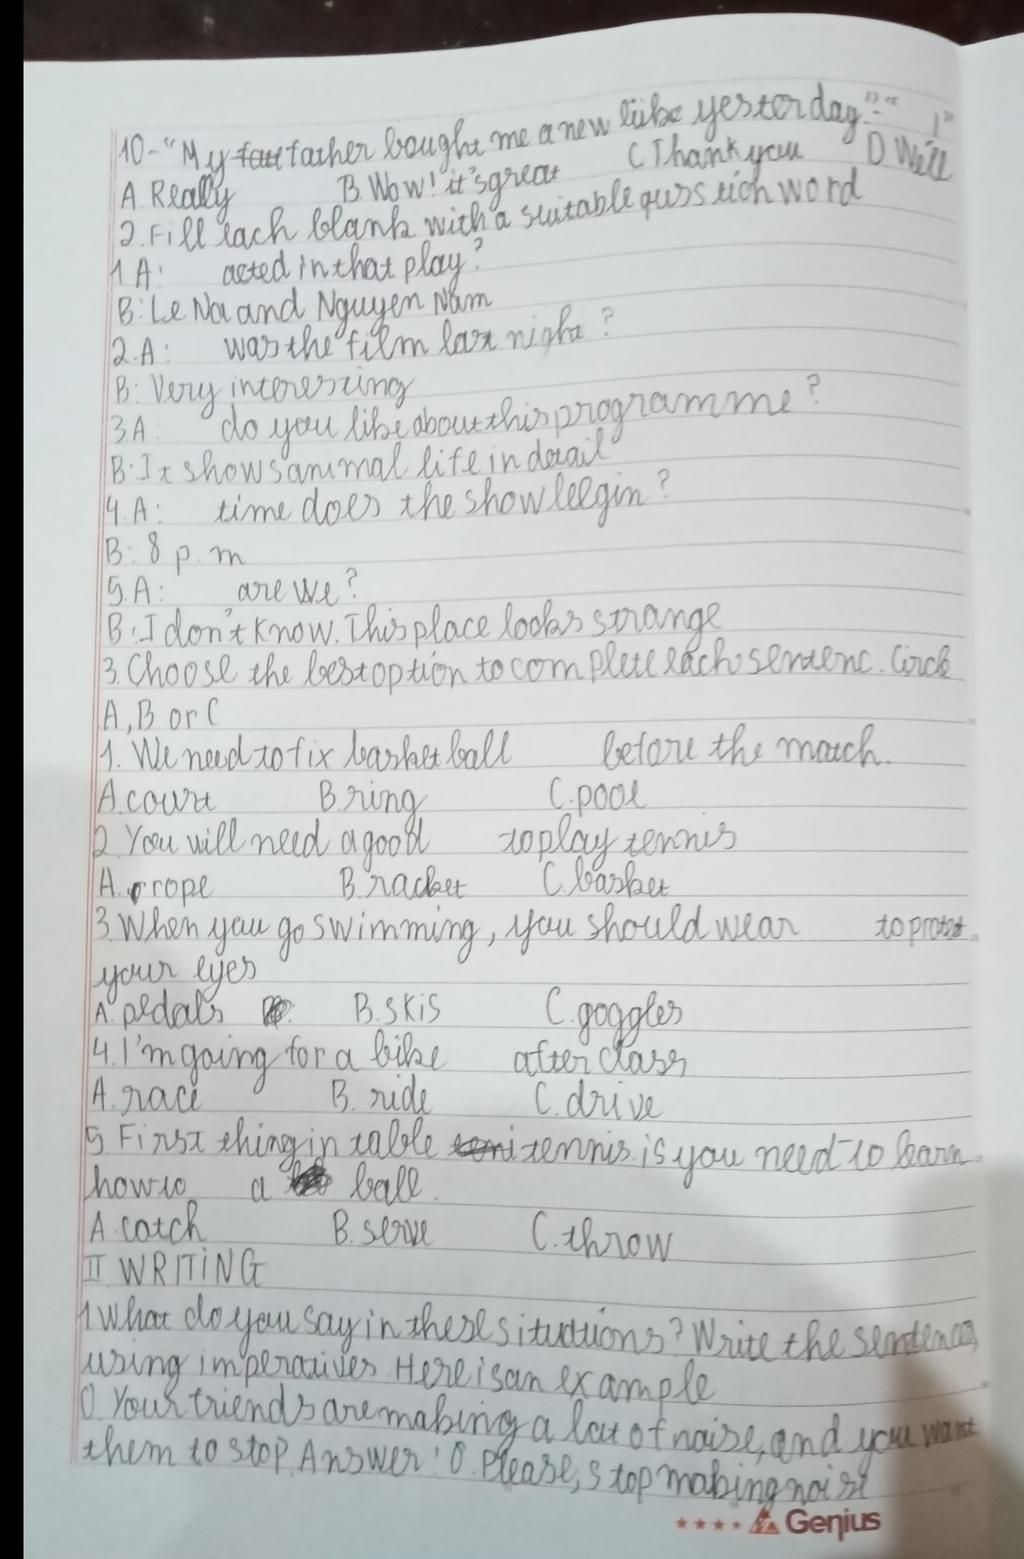 10-"My father bought me a new bike yesterday"-" !"
A. Really B. Wow! it's great C Thank you D Well
2. Fill each blank with a suitable question word
1 A: acted in that play?
B: Le Na and Nguyen Nam
2. A: was the film last night?
B: Very interesting
3 A: do you like about this programme?
B: It shows animal life in detail
4. A: time does the show begin?
B: 8 p.m
5. A: are we?
B: I don't know. This place looks strange
3. Choose the best option to complete each sentenc. Circle
A, B or C
1. We need to fix basket ball before the match.
A. court B. ring C. pool
2. You will need a good to play tennis
A. rope B. racket C. basket
3. When you go swimming, you should wear to protect
your eyes
A. pedals B. skis C. goggles
4. I'm going for a bike after class
A. race B. ride C. drive
5. First thing in table tennis is you need to learn
how to a ball.
A. catch B. serve C. throw
II WRITING
1 What do you say in these situations? Write the sentences,
using imperatives. Here is an example
0. Your friends are making a lot of noise, and you want
them to stop. Answer: 0. Please, stop making noise
Genius